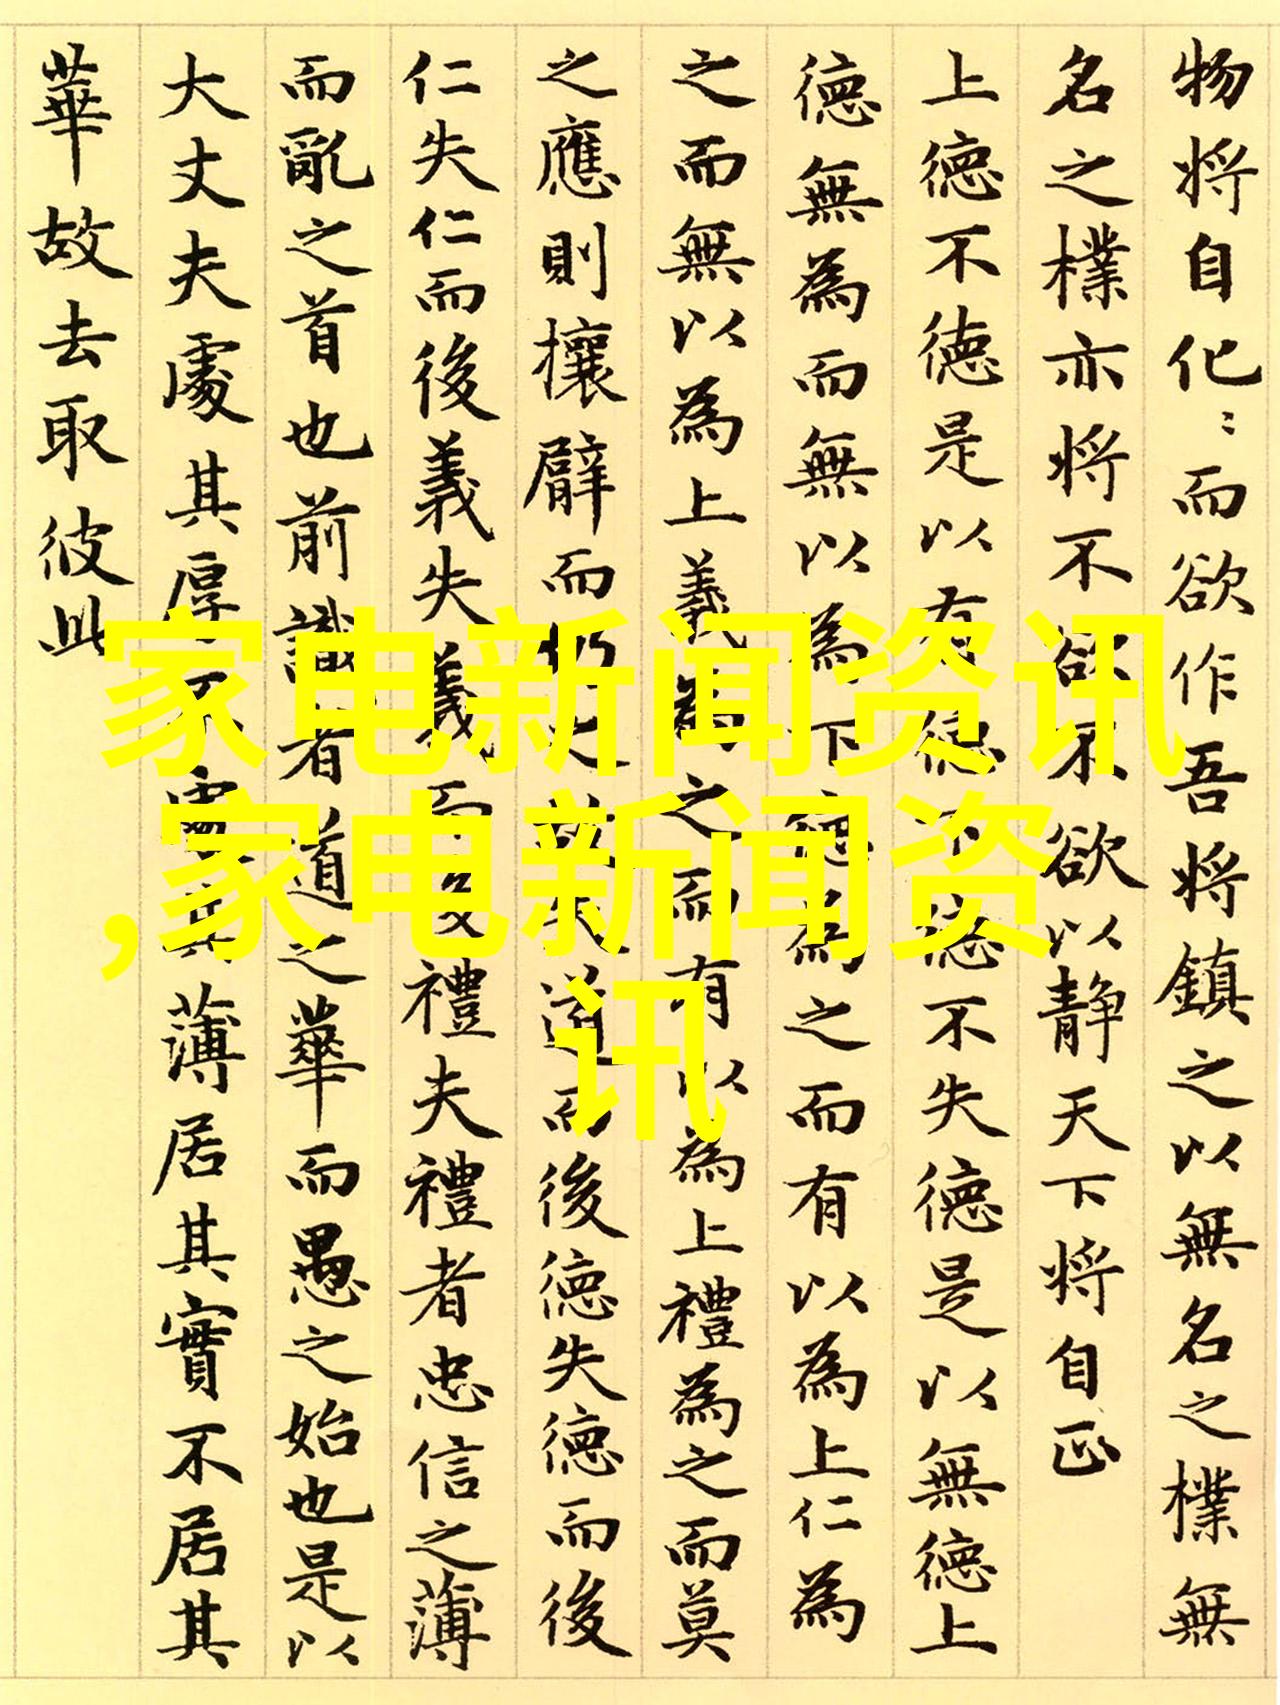 物将自化〻而欲作吾将鎮之以無名之樸無
名之樸亦将不欲不欲以静天下将自正
上德不德是以有德下德不失德是以無德上
德無為而無以為下德為之而有以為上仁為
之而無以為上義為之而有以為上禮為之而莫
之應則攘臂而仍之故失道而後德失德而後
仁失仁而後義失義而後禮夫禮者忠信之薄
而亂之首也前識者道之華而愚之始也是以
大丈夫處其厚不處其薄居其實不居其
華故去取彼此
家电新闻资讯
,家电新闻资
讯